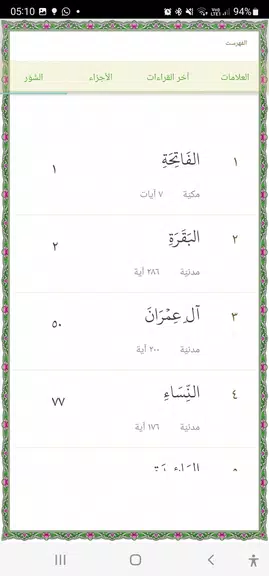 05:10 94%
الفهرست
العلامات آخر القراءات الأجزاء السُّوَر
١ الفَاتِحَةِ ١
مكية ٧ آيات
٢ البَقَرَةِ ٢
مدنية ٢٨٦ آية
٣ آلِ عِمْرَانَ ٥٠
مدنية ٢٠٠ آية
٤ النِّسَاءِ ٧٧
مدنية ١٧٦ آية